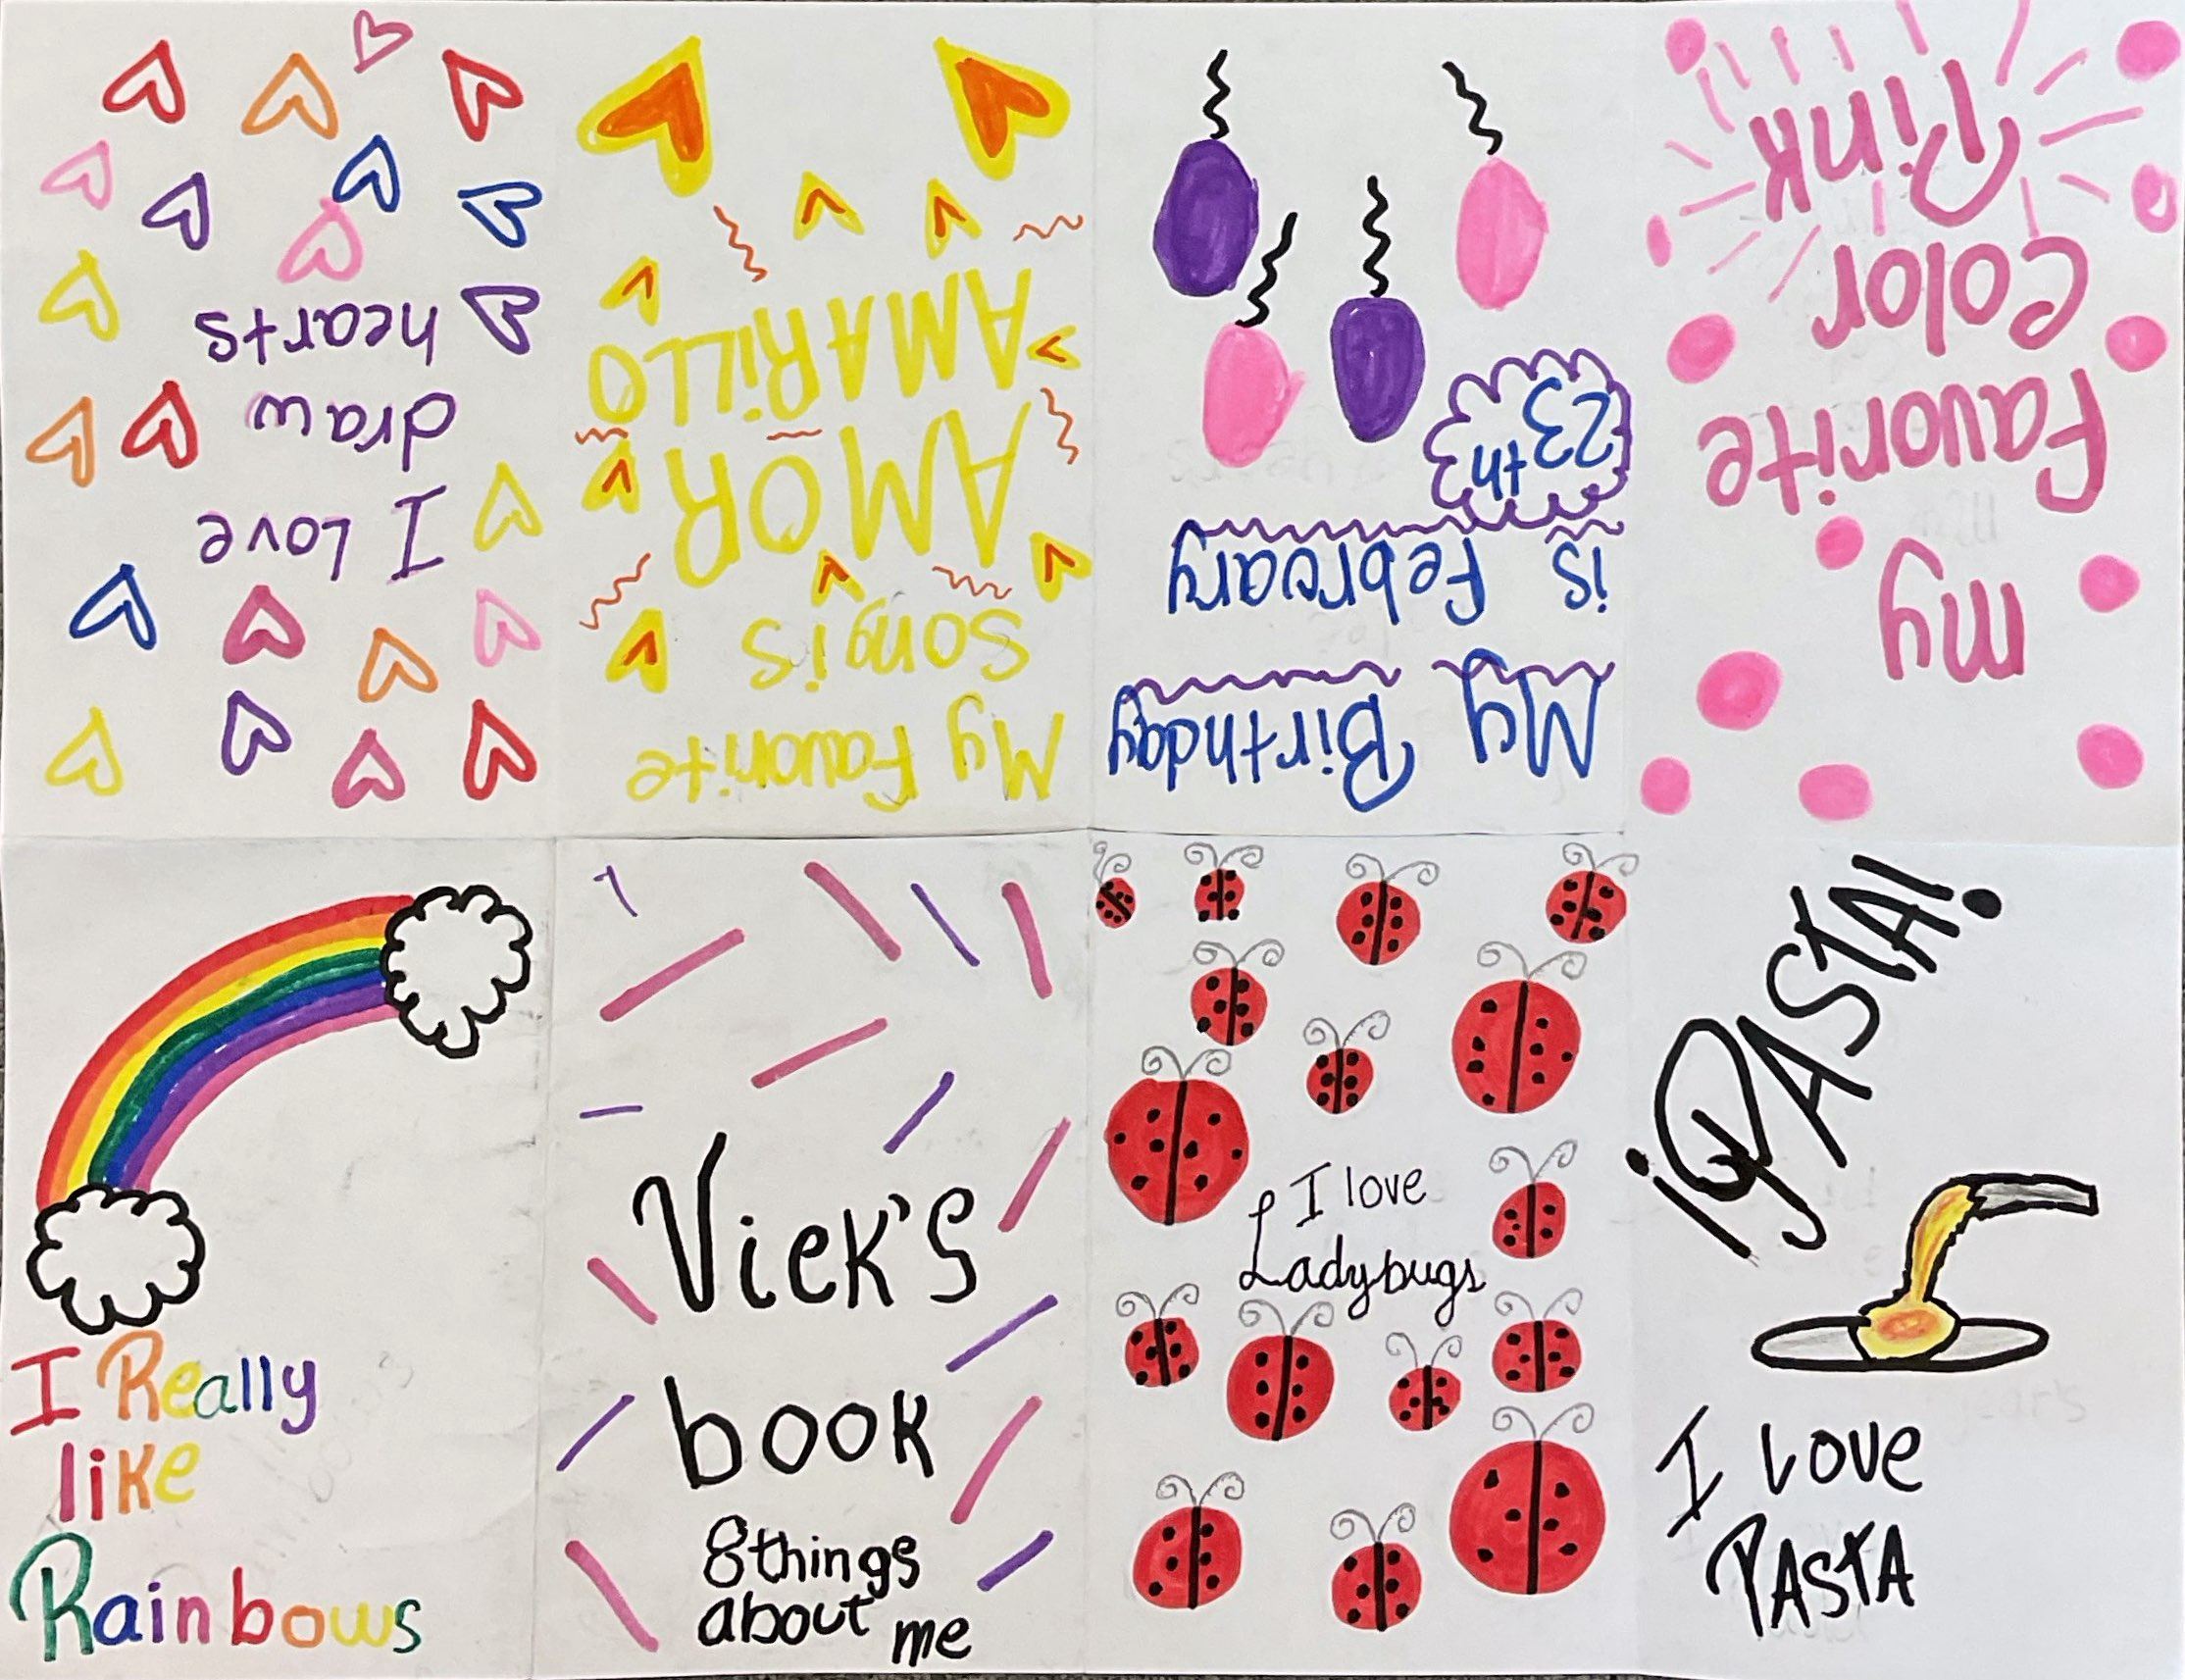 Vick's
book
8 things
about me
I love
Ladybugs
¡PASTA!
I Love
PASTA
my
Favorite
Color
Pink
My Birthday
is February
23th
My Favorite
Song is
AMOR
AMARiLLO
I Love
draw
hearts
I Really
like
Rainbows